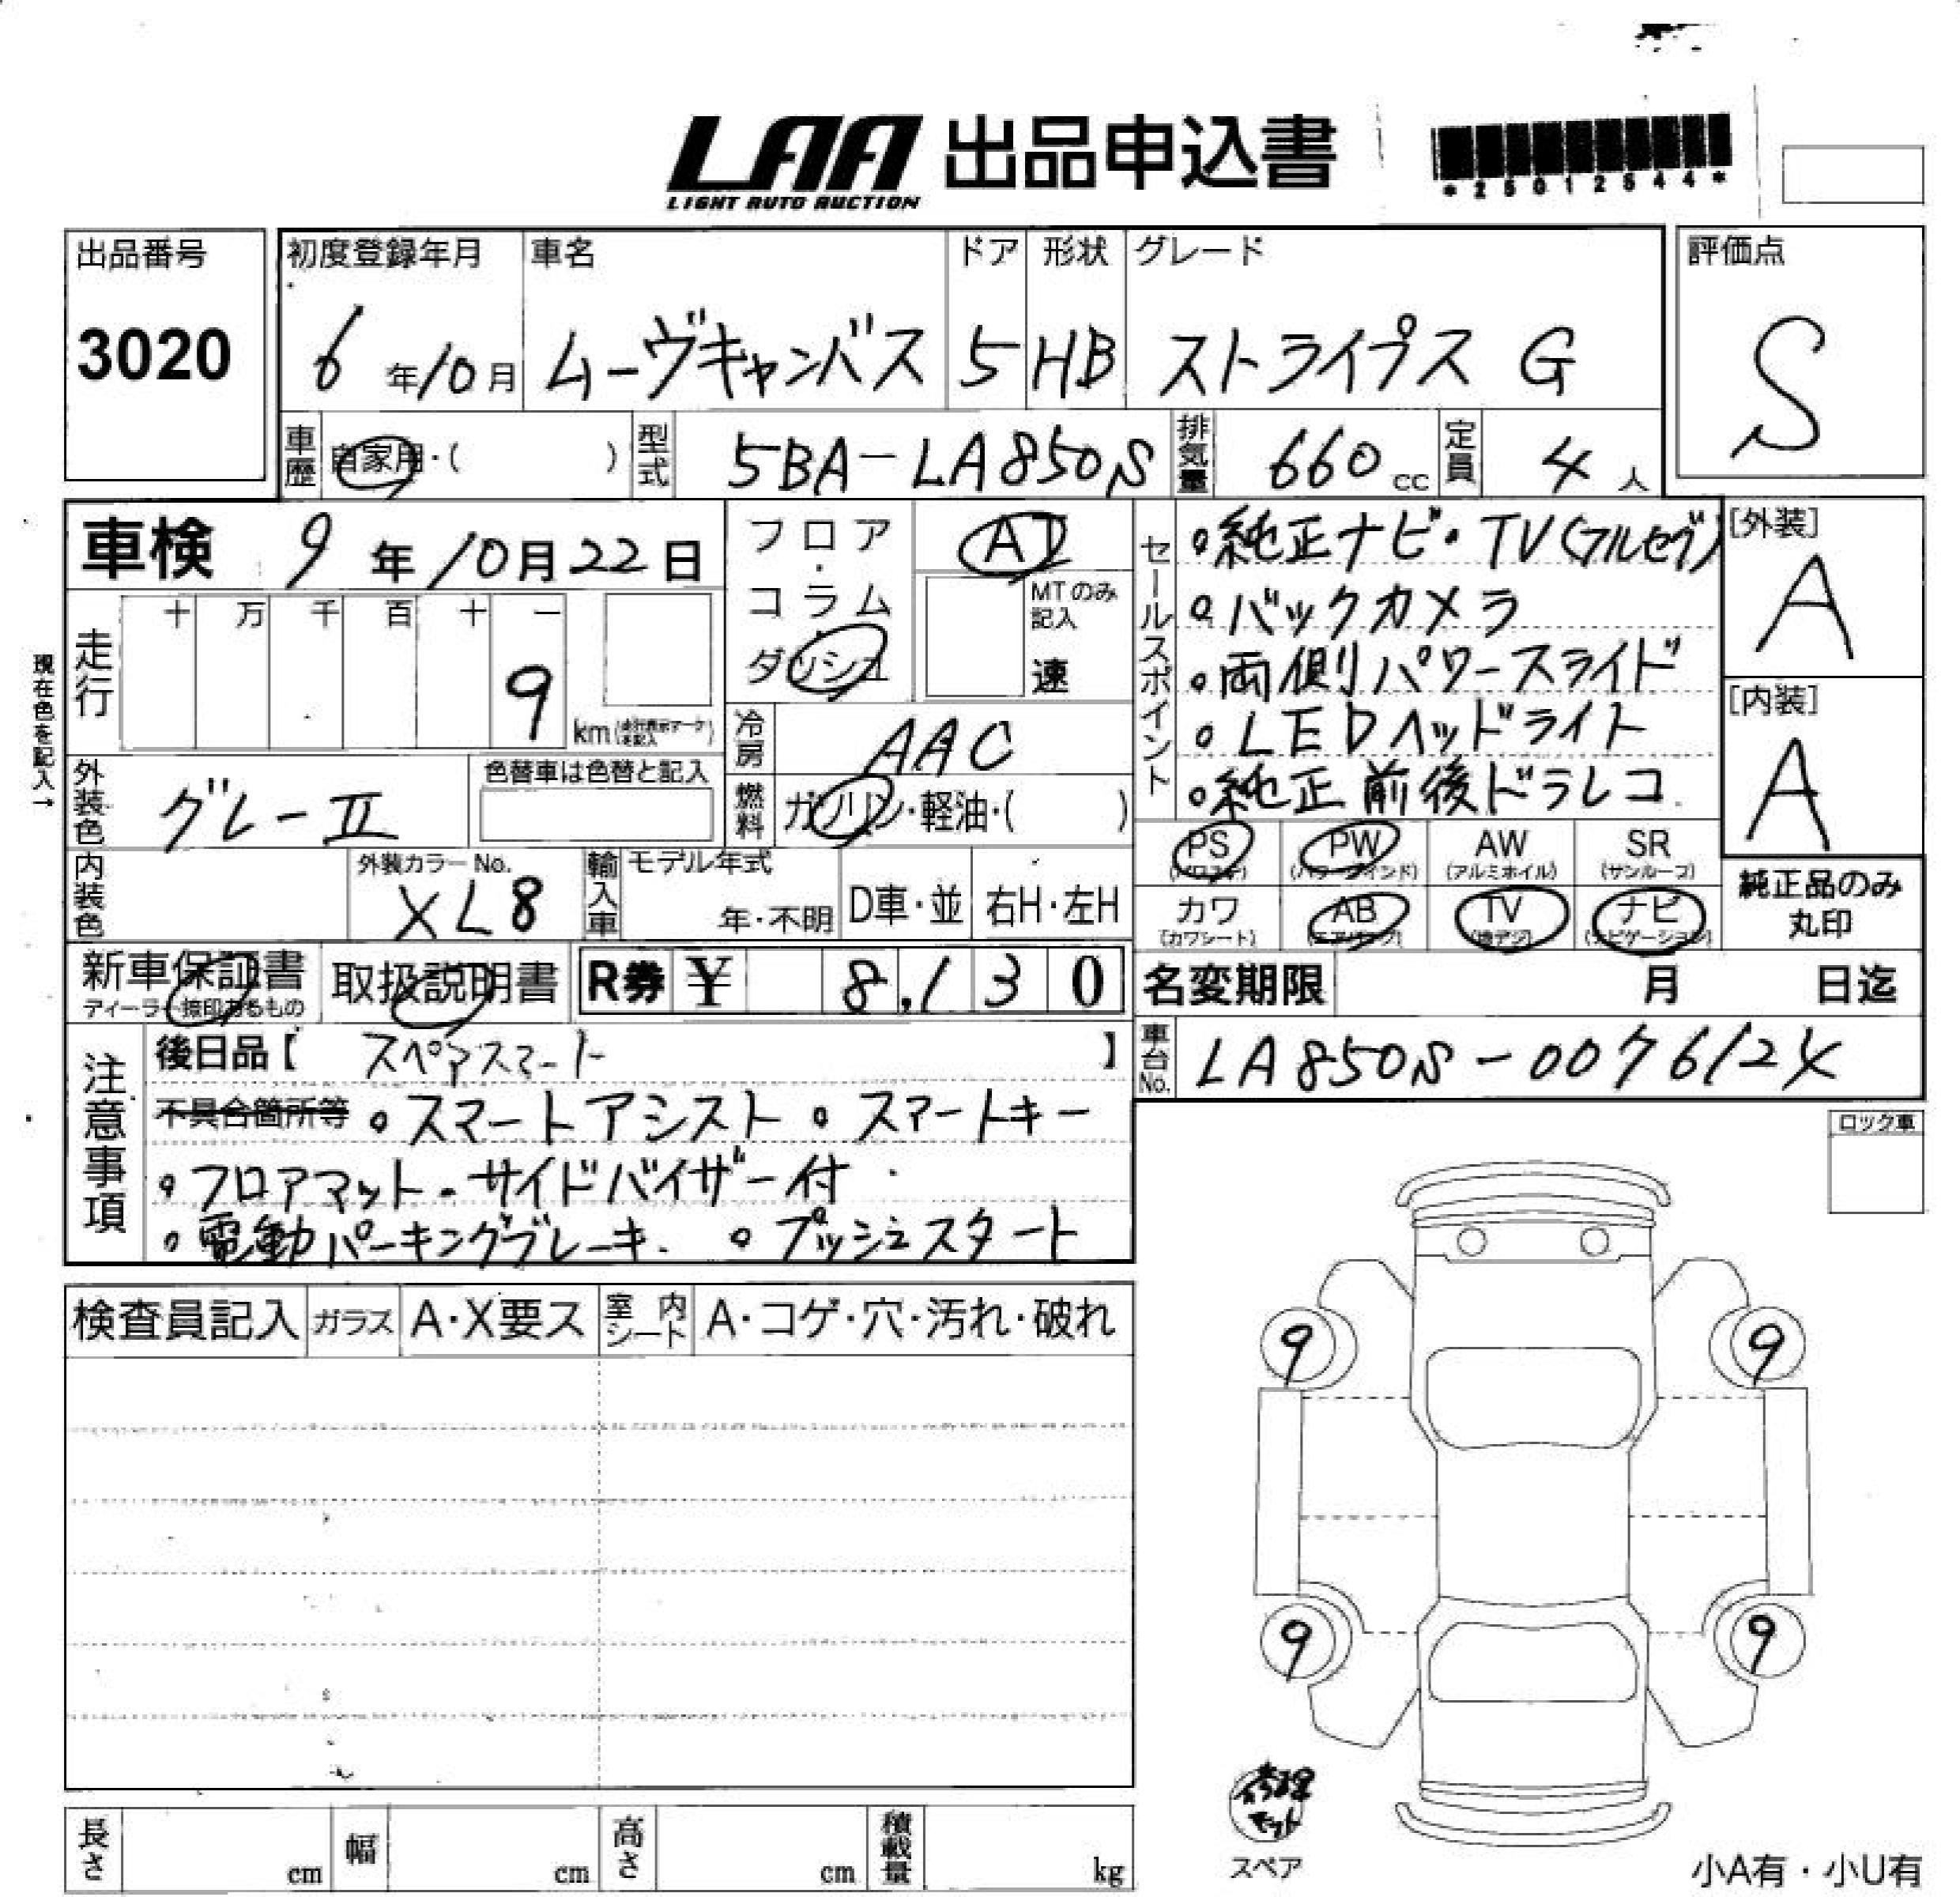 LAA 出品申込書
LIGHT AUTO AUCTION
出品番号
3020
初度登録年月
6年10月
車名
ムーヴキャンバス
ドア
5
形状
HB
グレード
ストライプス G
評価点
S
車歴 自家用・( )
型式 5BA-LA850S
排気量 660cc
定員 4人
車検 9年10月22日
現在色を記入→
走行 十 万 千 百 十 一
9 km
フロア・コラム・ダッシュ
AT
MTのみ記入
速
冷房 AAC
燃料 ガソリン・軽油・( )
セールスポイント
○純正ナビ・TV(フルセグ)
○バックカメラ
○両側パワースライド
○LEDヘッドライト
○純正前後ドラレコ
[外装]
A
[内装]
A
外装色 グレーII
色替車は色替と記入
内装色
外装カラーNo.
XL8
輸入車 モデル年式
年・不明 D車・並 右H・左H
PS (パワステ) PW (パワーウインド) AW (アルミホイル) SR (サンルーフ)
カワ (カワシート) AB (エアバッグ) TV (地デジ) ナビ (ナビゲーション)
純正品のみ
丸印
新車保証書
ディーラー捺印あるもの
取扱説明書
R券 ¥ 8,130
名変期限 月 日迄
車台No. LA850S-0076124
注意事項
後日品【 スペアスマート 】
不具合箇所等 ○スマートアシスト ○スマートキー
○フロアマット・サイドバイザー付
○電動パーキングブレーキ ○プッシュスタート
ロック車
検査員記入 ガラス A・X要ス 室内シート A・コゲ・穴・汚れ・破れ
9 9
9 9
修理キット
スペア
長さ cm 幅 cm 高さ cm 積載量 kg
小A有・小U有